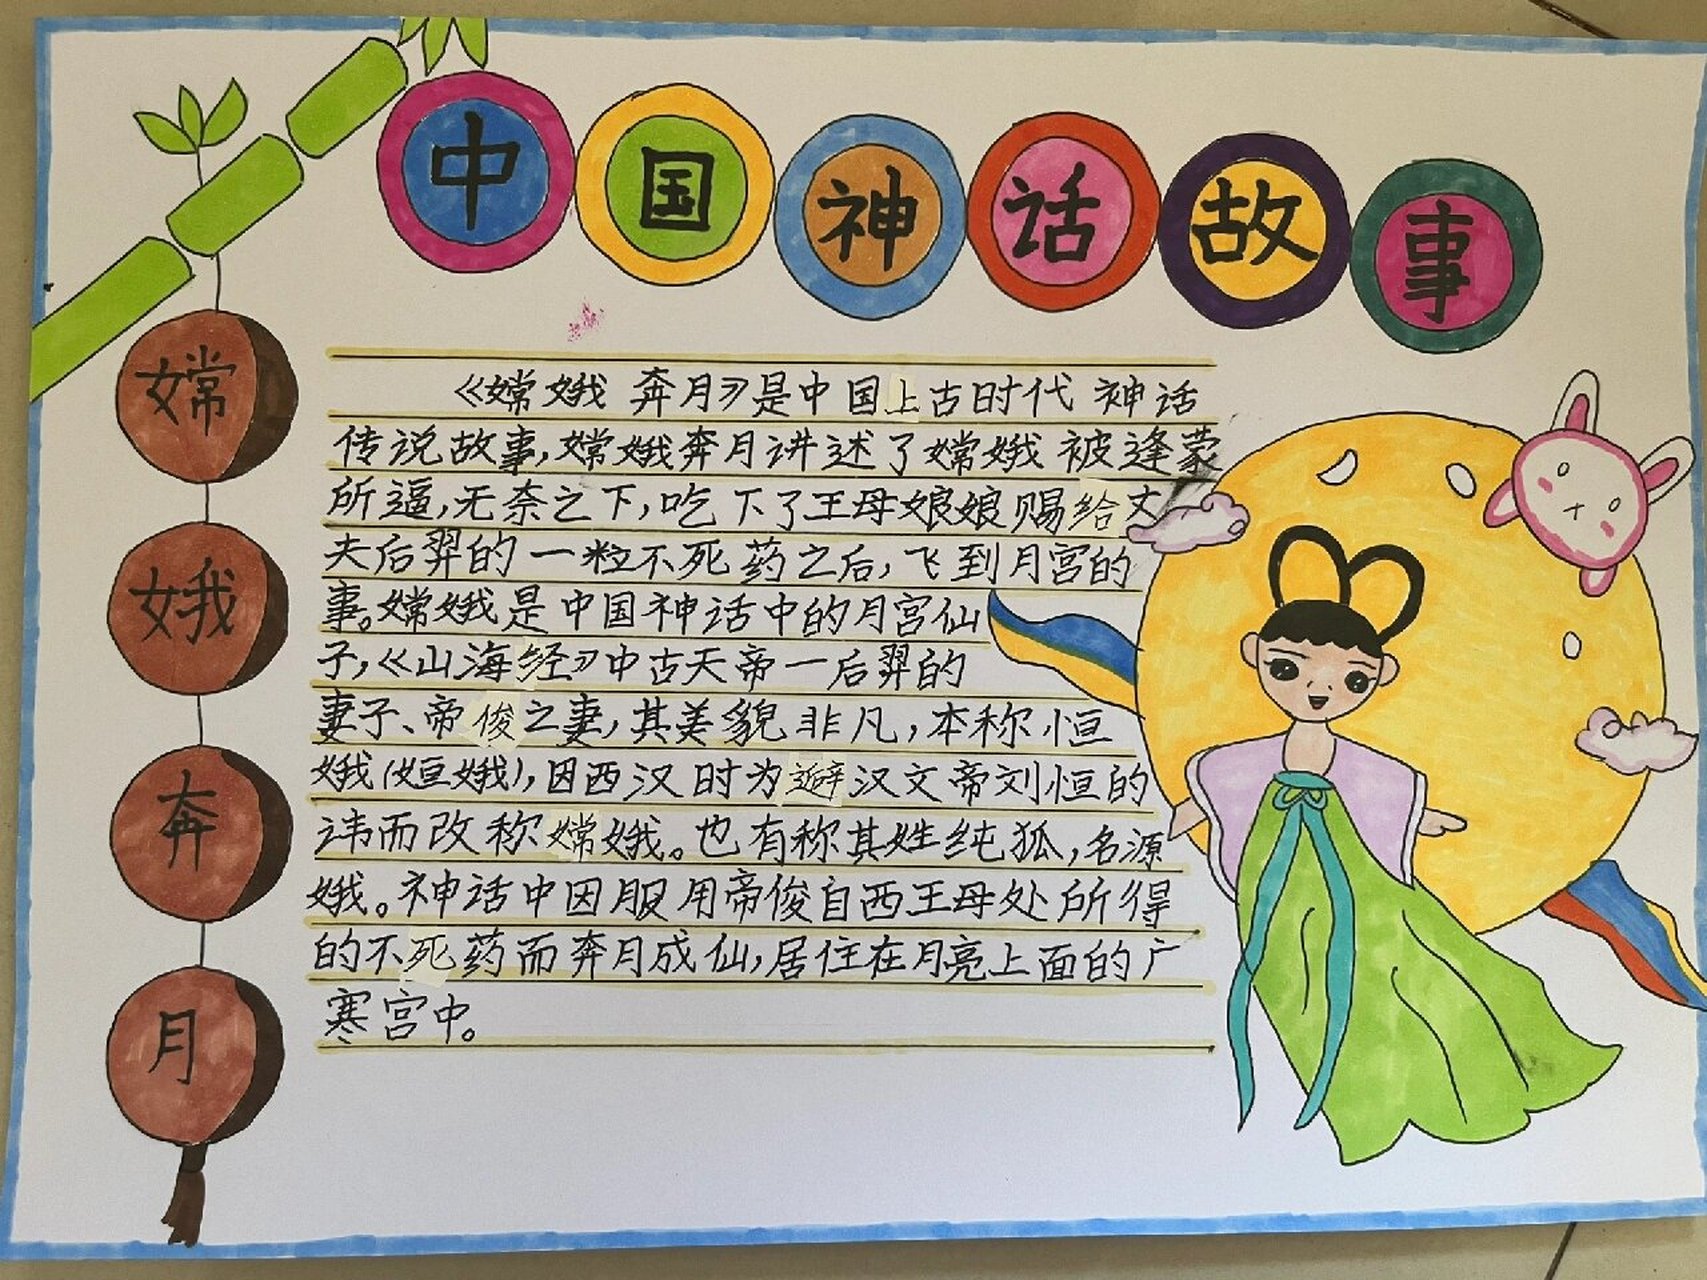 中国神话故事
嫦娥奔月
《嫦娥奔月》是中国上古时代神话
传说故事,嫦娥奔月讲述了嫦娥被逢蒙
所逼,无奈之下,吃下了王母娘娘赐给丈
夫后羿的一粒不死药之后,飞到月宫的
事。嫦娥是中国神话中的月宫仙
子,《山海经》中古天帝一后羿的
妻子、帝俊之妻,其美貌非凡,本称恒
娥(姮娥),因西汉时为避汉文帝刘恒的
讳而改称嫦娥。也有称其姓纯狐,名源
娥。神话中因服用帝俊自西王母处所得
的不死药而奔月成仙,居住在月亮上面的广
寒宫中。